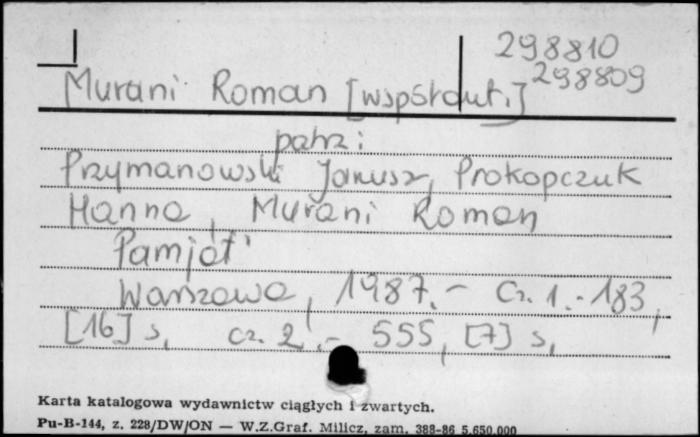 298810
Murani Roman [współaut.] 298809
patrz:
Przymanowski Janusz, Prokopczuk
Hanna, Murani Roman
Pamjat'
Warszawa, 1987.- Cz. 1.- 183,
[16] s, cz. 2.- 555, [7] s,
Karta katalogowa wydawnictw ciągłych i zwartych.
Pu-B-144, z. 228/DW/ON — W.Z.Graf. Milicz, zam. 388-86 5.650.000